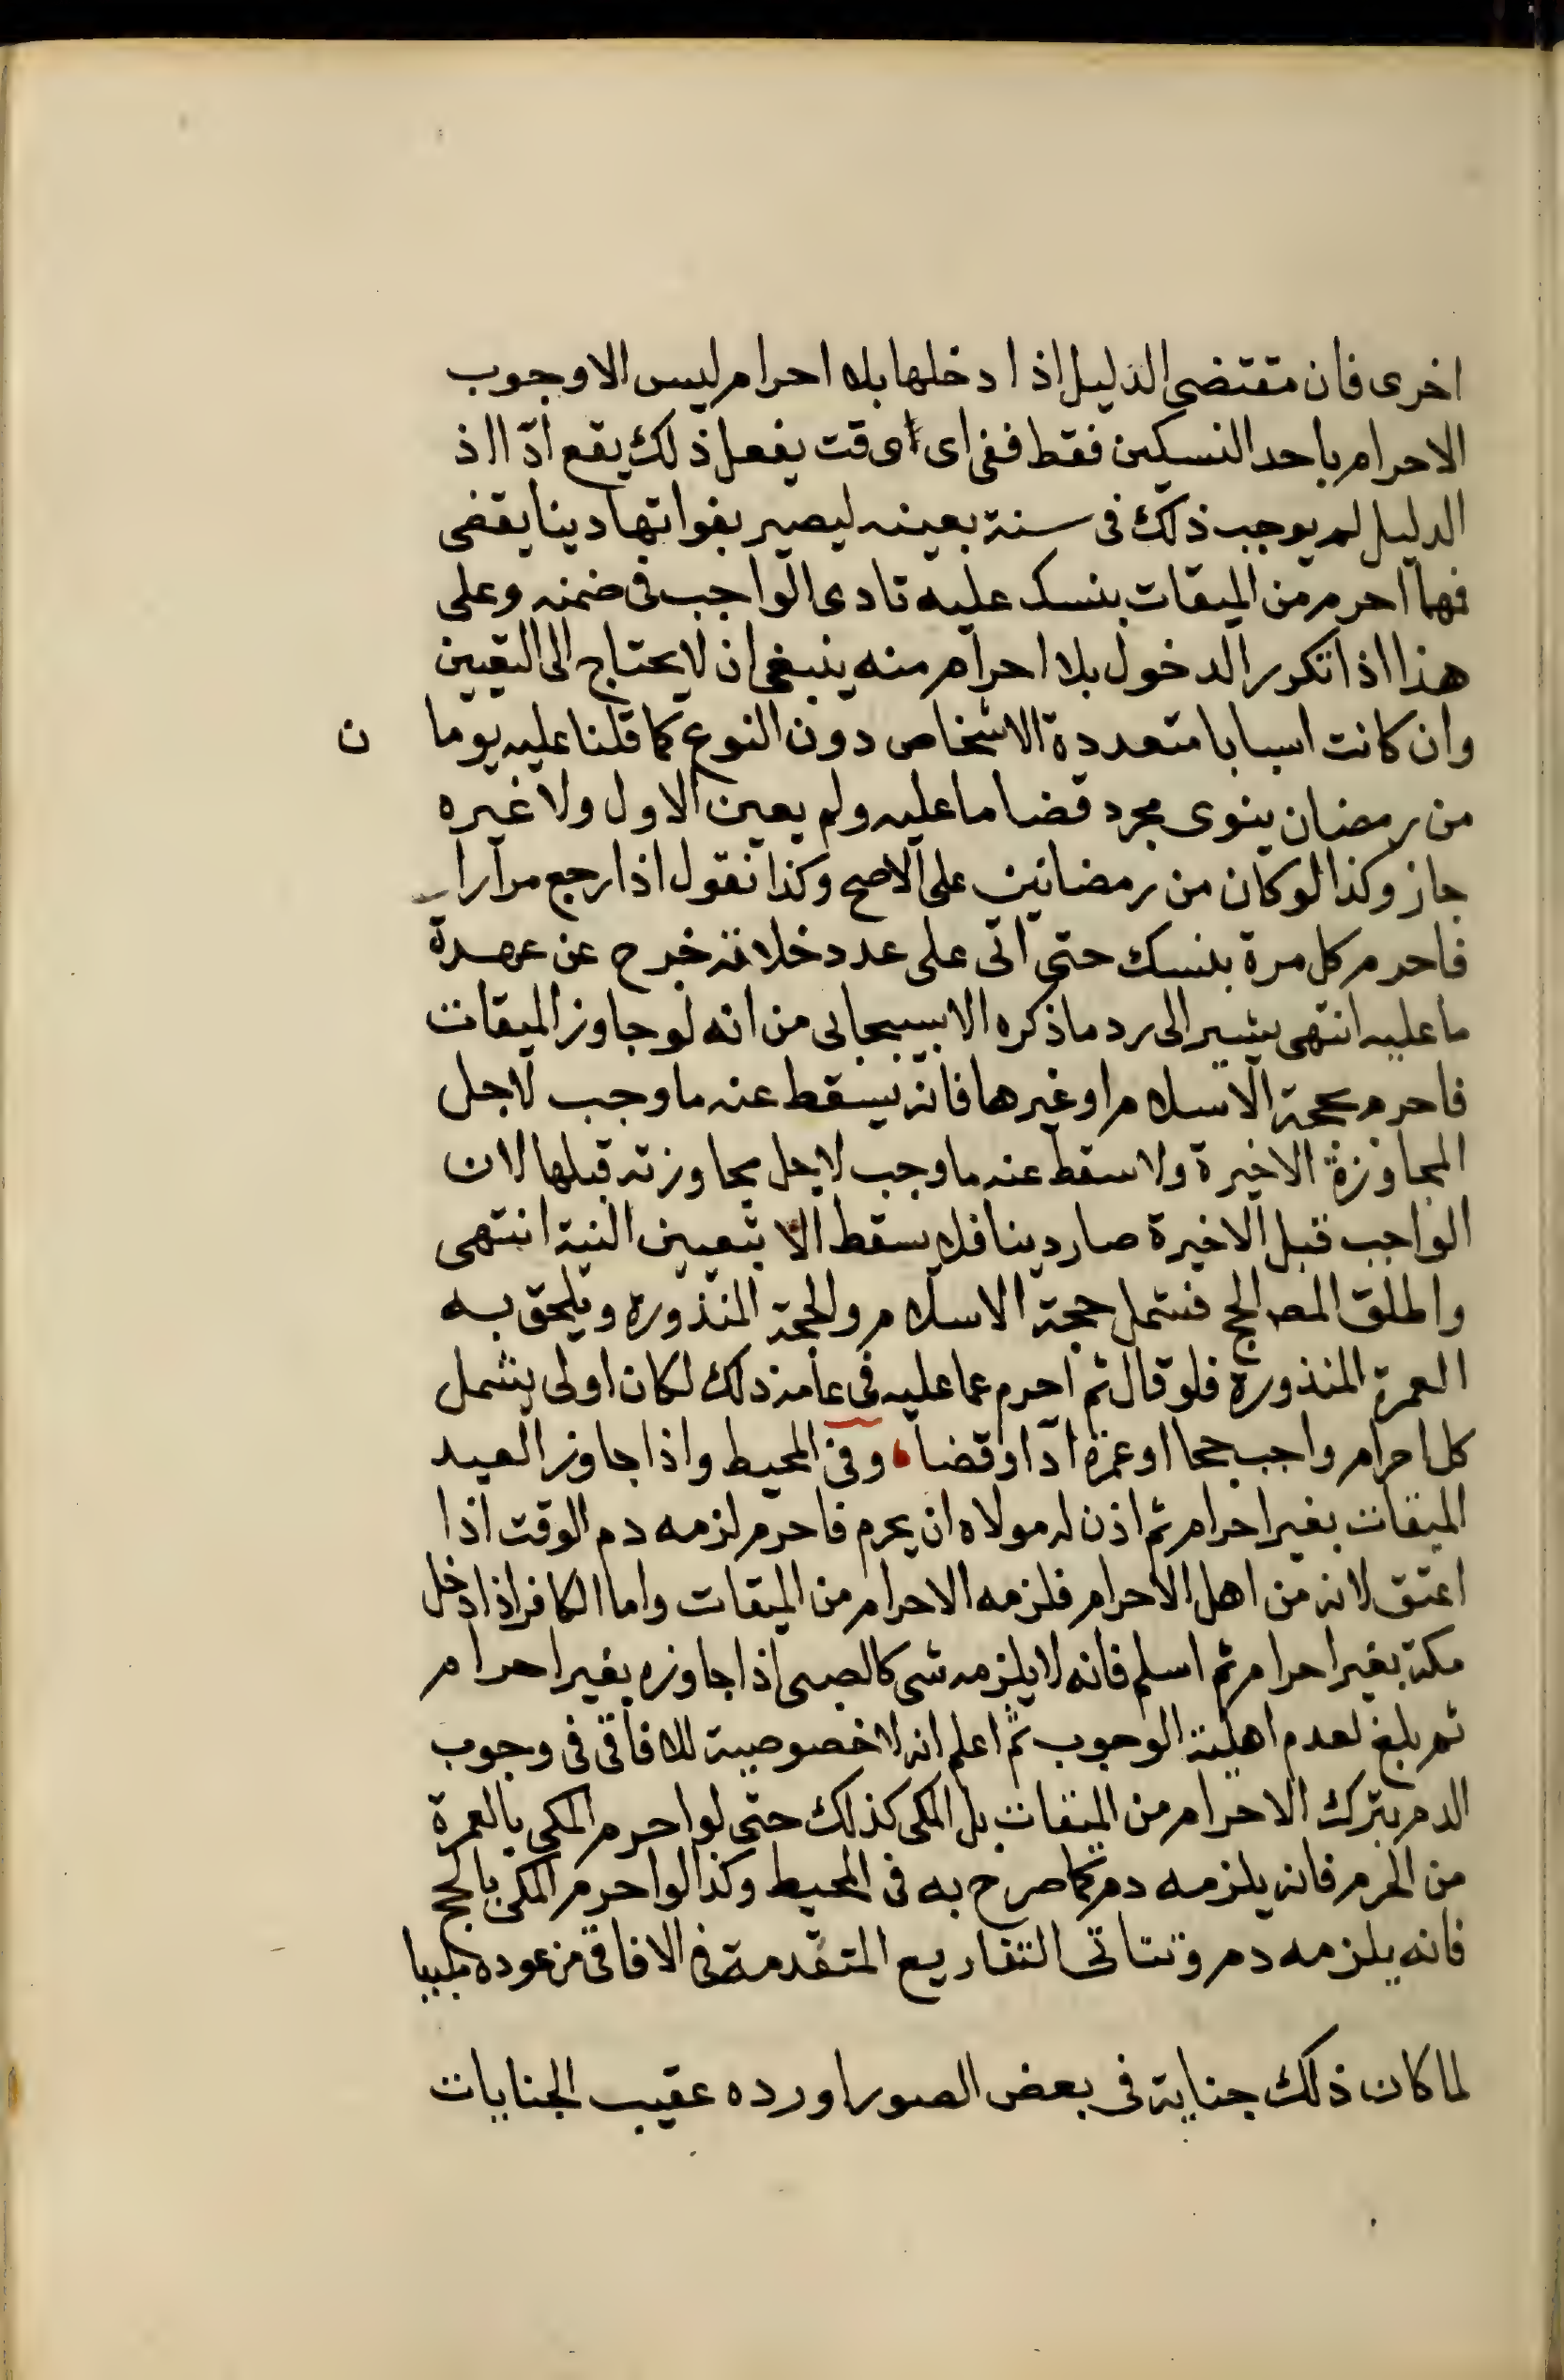 اخرى فان مقتضى الدليل اذا دخلها بلا احرام ليس الا وجوب
الاحرام باحد النسكين فقط ففى اى وقت يفعل ذلك يقع ادّا اذ
الدليل لم يوجب ذلك فى سنة بعينه ليصير بفواتها دينا يقضى
فهما احرم من الميقات بنسك عليه تادى الواجب فى ضمنه وعلى
هذا اذا تكرر الدخول بلا احرام منه ينبغى ان لا يحتاج الى التعيين
وان كانت اسبابا متعددة الاشخاص دون النوع كما قلنا عليه يوما ن
من رمضان ينوى مجرد قضا ما عليه ولم يعين الاول ولا غيره
جاز وكذا لو كان من رمضانين على الاصح وكذا نقول اذا رجع مرارا
فاحرم كل مرة بنسك حتى اتى على عدد خلاته خرج عن عهدة
ما عليه انتهى يشير الى رد ما ذكره الاسبيجابى من انه لو جاوز الميقات
فاحرم بحجة الاسلام او غيرها فانه يسقط عنه ما وجب لاجل
المجاوزة الاخيرة ولا سقط عنه ما وجب لاجل مجاوزته قبلها لان
الواجب قبل الاخيرة صار دينا فلا يسقط الا بتعيين النية انتهى
واطلق المص الحج فشمل حجة الاسلام والحجة المنذورة ويلحق به
العمرة المنذورة فلو قال ثم احرم عما عليه فى عامه ذلك لكان اولى يشمل
كل احرام واجب حجا او عمرة ادا او قضا وفى المحيط واذا جاوز العبد
الميقات بغير احرام ثم اذن له مولاه ان يحرم فاحرم لزمه دم الوقت اذا
اعتق لانه من اهل الاحرام فلزمه الاحرام من الميقات واما الكافر اذا دخل
مكة بغير احرام ثم اسلم فانه لا يلزمه شى كالصبى اذا جاوزه بغير احرام
ثم بلغ لعدم اهلية الوجوب ثم اعلم انه لا خصوصية للافاقى فى وجوب
الدم بترك الاحرام من الميقات بل المكى كذلك حتى لو احرم المكى بالعمرة
من الحرم فانه يلزمه دم كما صرح به فى المحيط وكذا لو احرم المكى بالحج
فانه يلزمه دم وتتاتى التفاريع المتقدمة فى الافاقى من عوده ملبيا
لما كان ذلك جناية فى بعض الصور اورده عقيب الجنايات